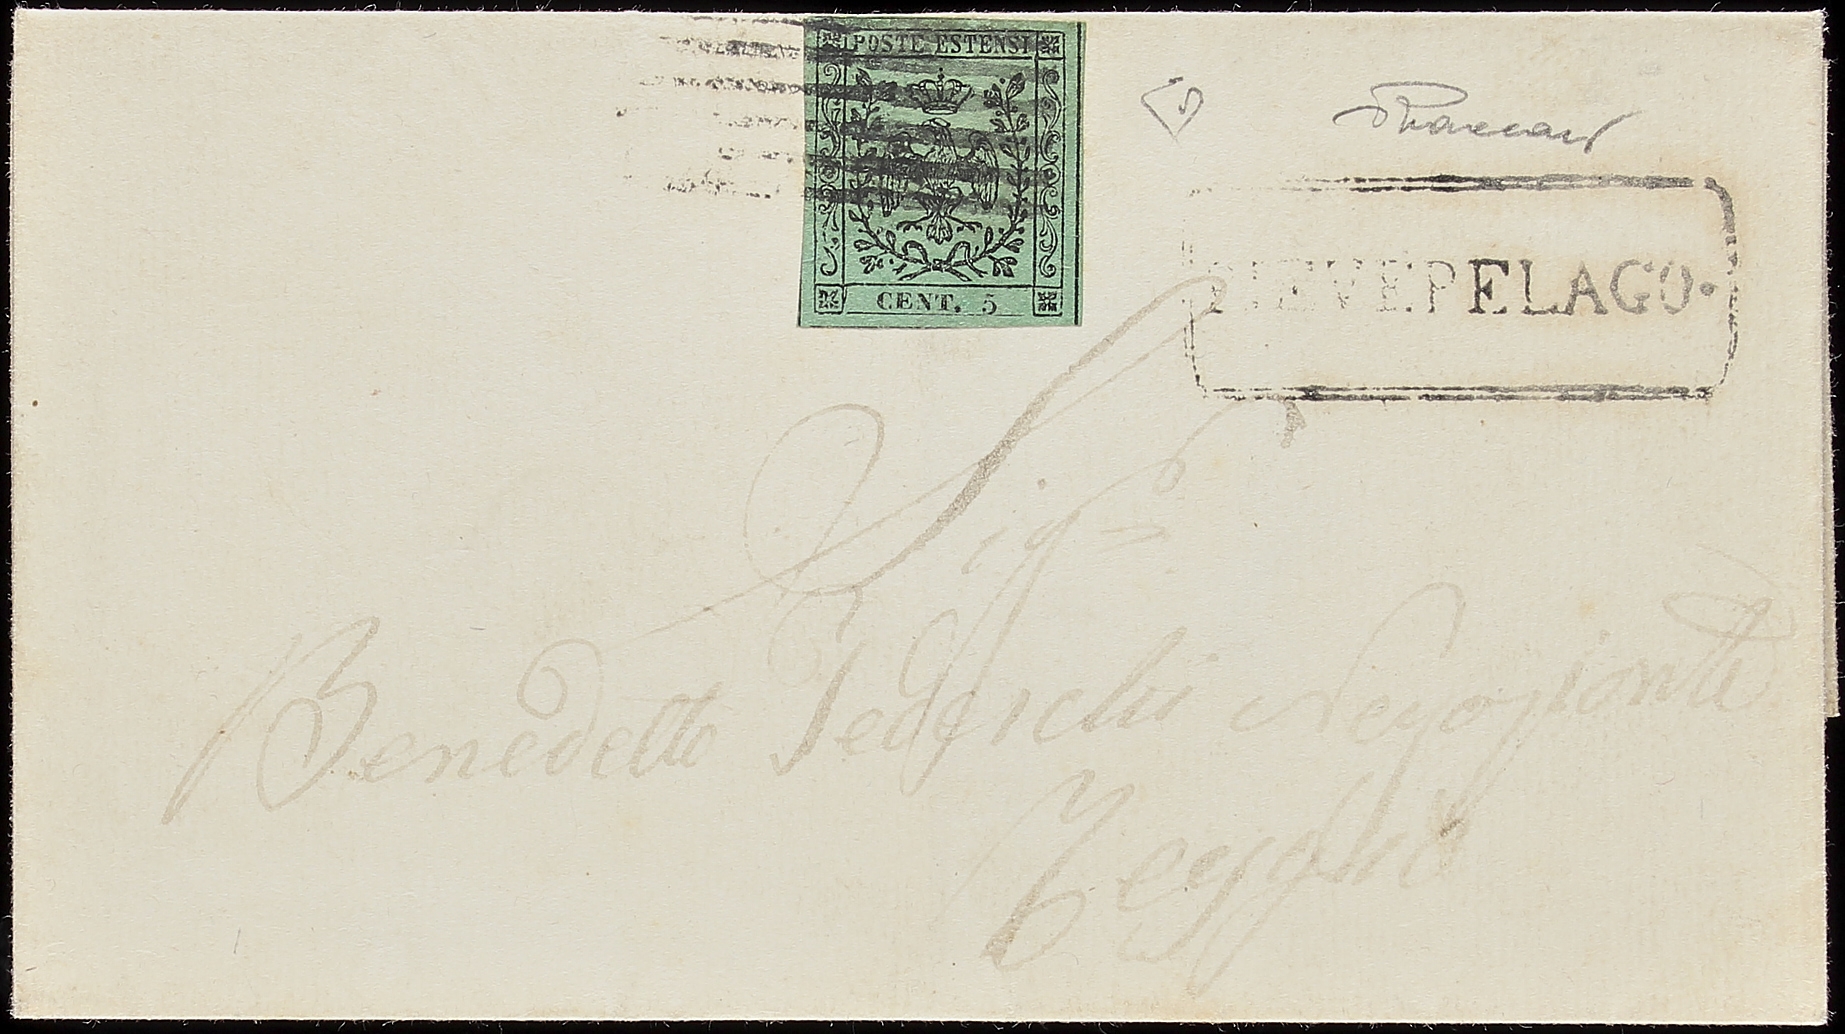 POSTE ESTENSI
CENT. 5
PIEVEPELAGO.
Sigr
Benedetto Tedeschi Negoziante
Reggio